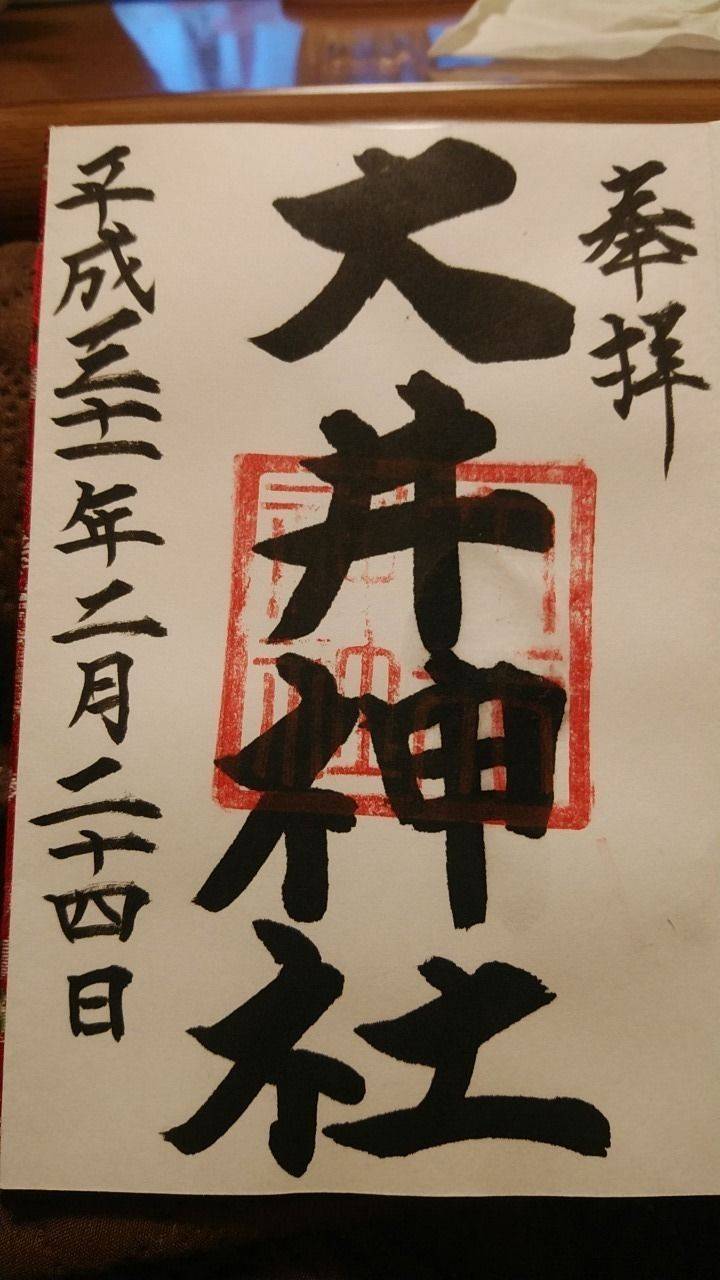 奉拝
大井神社
平成三十一年二月二十四日